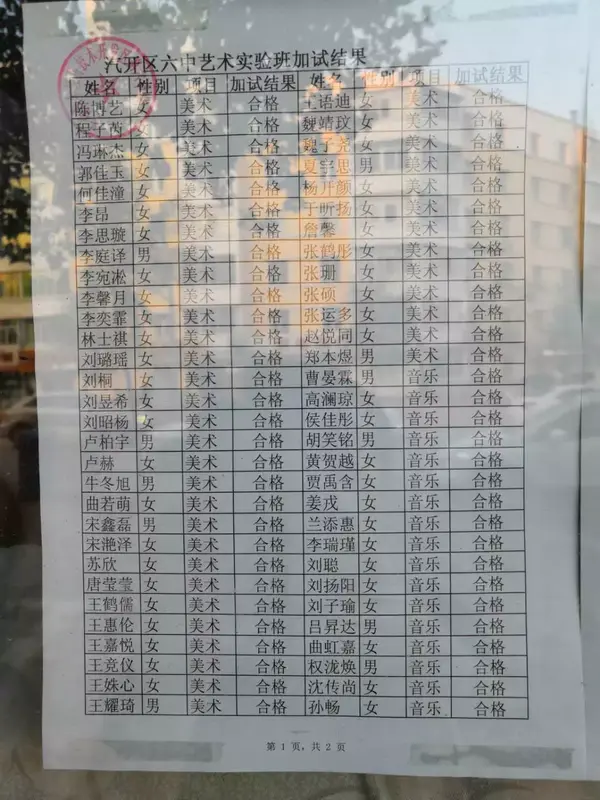 汽开区六中艺术实验班加试结果
姓名 性别 项目 加试结果 姓名 性别 项目 加试结果
陈博艺 女 美术 合格 王语迪 女 美术 合格
程子芮 女 美术 合格 魏靖玟 女 美术 合格
冯琳杰 女 美术 合格 魏子尧 女 美术 合格
郭佳玉 女 美术 合格 夏宇思 男 美术 合格
何佳潼 女 美术 合格 杨开颜 女 美术 合格
李昂 女 美术 合格 于昕扬 女 美术 合格
李思璇 女 美术 合格 詹馨 女 美术 合格
李庭译 男 美术 合格 张鹤彤 女 美术 合格
李宛凇 女 美术 合格 张珊 女 美术 合格
李馨月 女 美术 合格 张硕 女 美术 合格
李奕霏 女 美术 合格 张运多 女 美术 合格
林士祺 女 美术 合格 赵悦同 女 美术 合格
刘璐瑶 女 美术 合格 郑本煜 男 美术 合格
刘桐 女 美术 合格 曹晏霖 男 音乐 合格
刘昱希 女 美术 合格 高澜琼 女 音乐 合格
刘昭杨 女 美术 合格 侯佳彤 女 音乐 合格
卢柏宇 男 美术 合格 胡笑铭 男 音乐 合格
卢赫 女 美术 合格 黄贺越 女 音乐 合格
牛冬旭 男 美术 合格 贾禹含 女 音乐 合格
曲若萌 女 美术 合格 姜戎 女 音乐 合格
宋鑫磊 男 美术 合格 兰添惠 女 音乐 合格
宋滟泽 女 美术 合格 李瑞瑾 女 音乐 合格
苏欣 女 美术 合格 刘聪 女 音乐 合格
唐莹莹 女 美术 合格 刘扬阳 女 音乐 合格
王鹤儒 女 美术 合格 刘子瑜 女 音乐 合格
王惠伦 女 美术 合格 吕昇达 男 音乐 合格
王嘉悦 女 美术 合格 曲虹嘉 女 音乐 合格
王竞仪 女 美术 合格 权泷焕 男 音乐 合格
王姝心 女 美术 合格 沈传尚 女 音乐 合格
王耀琦 男 美术 合格 孙畅 女 音乐 合格
第 1 页，共 2 页